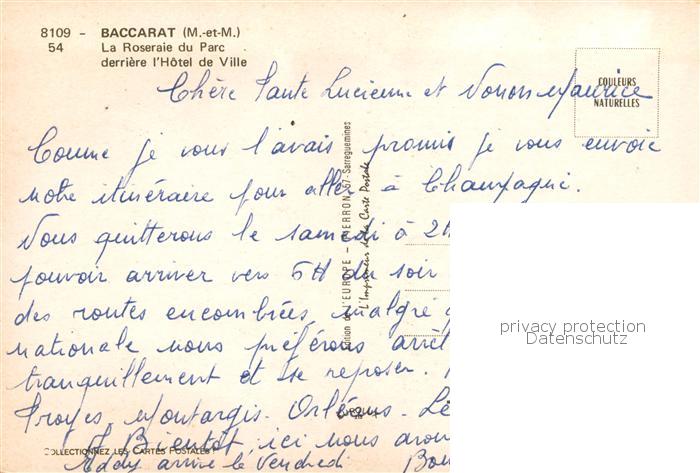 8109 - BACCARAT (M.-et-M.)
54 La Roseraie du Parc
derrière l'Hôtel de Ville
COULEURS
NATURELLES
Chère Tante Lucienne et Nonon Maurice
Comme je vous l'avais promis je vous envoie
notre itinéraire pour aller à Champagne.
Nous quitterons le samedi à 2H
pouvoir arriver vers 6H du soir
des routes encombrées, malgré
nationale nous préférons arrêt
tranquillement et se reposer.
Troyes. Montargis. Orléans.
A Bientôt, ici nous avons
Eddy arrive le Vendredi Bon
COLLECTIONNEZ LES CARTES POSTALES
Edition de l'EUROPE - PIERRON 57-Sarreguemines
L'Imprimeur de la Carte Postale
privacy protection
Datenschutz